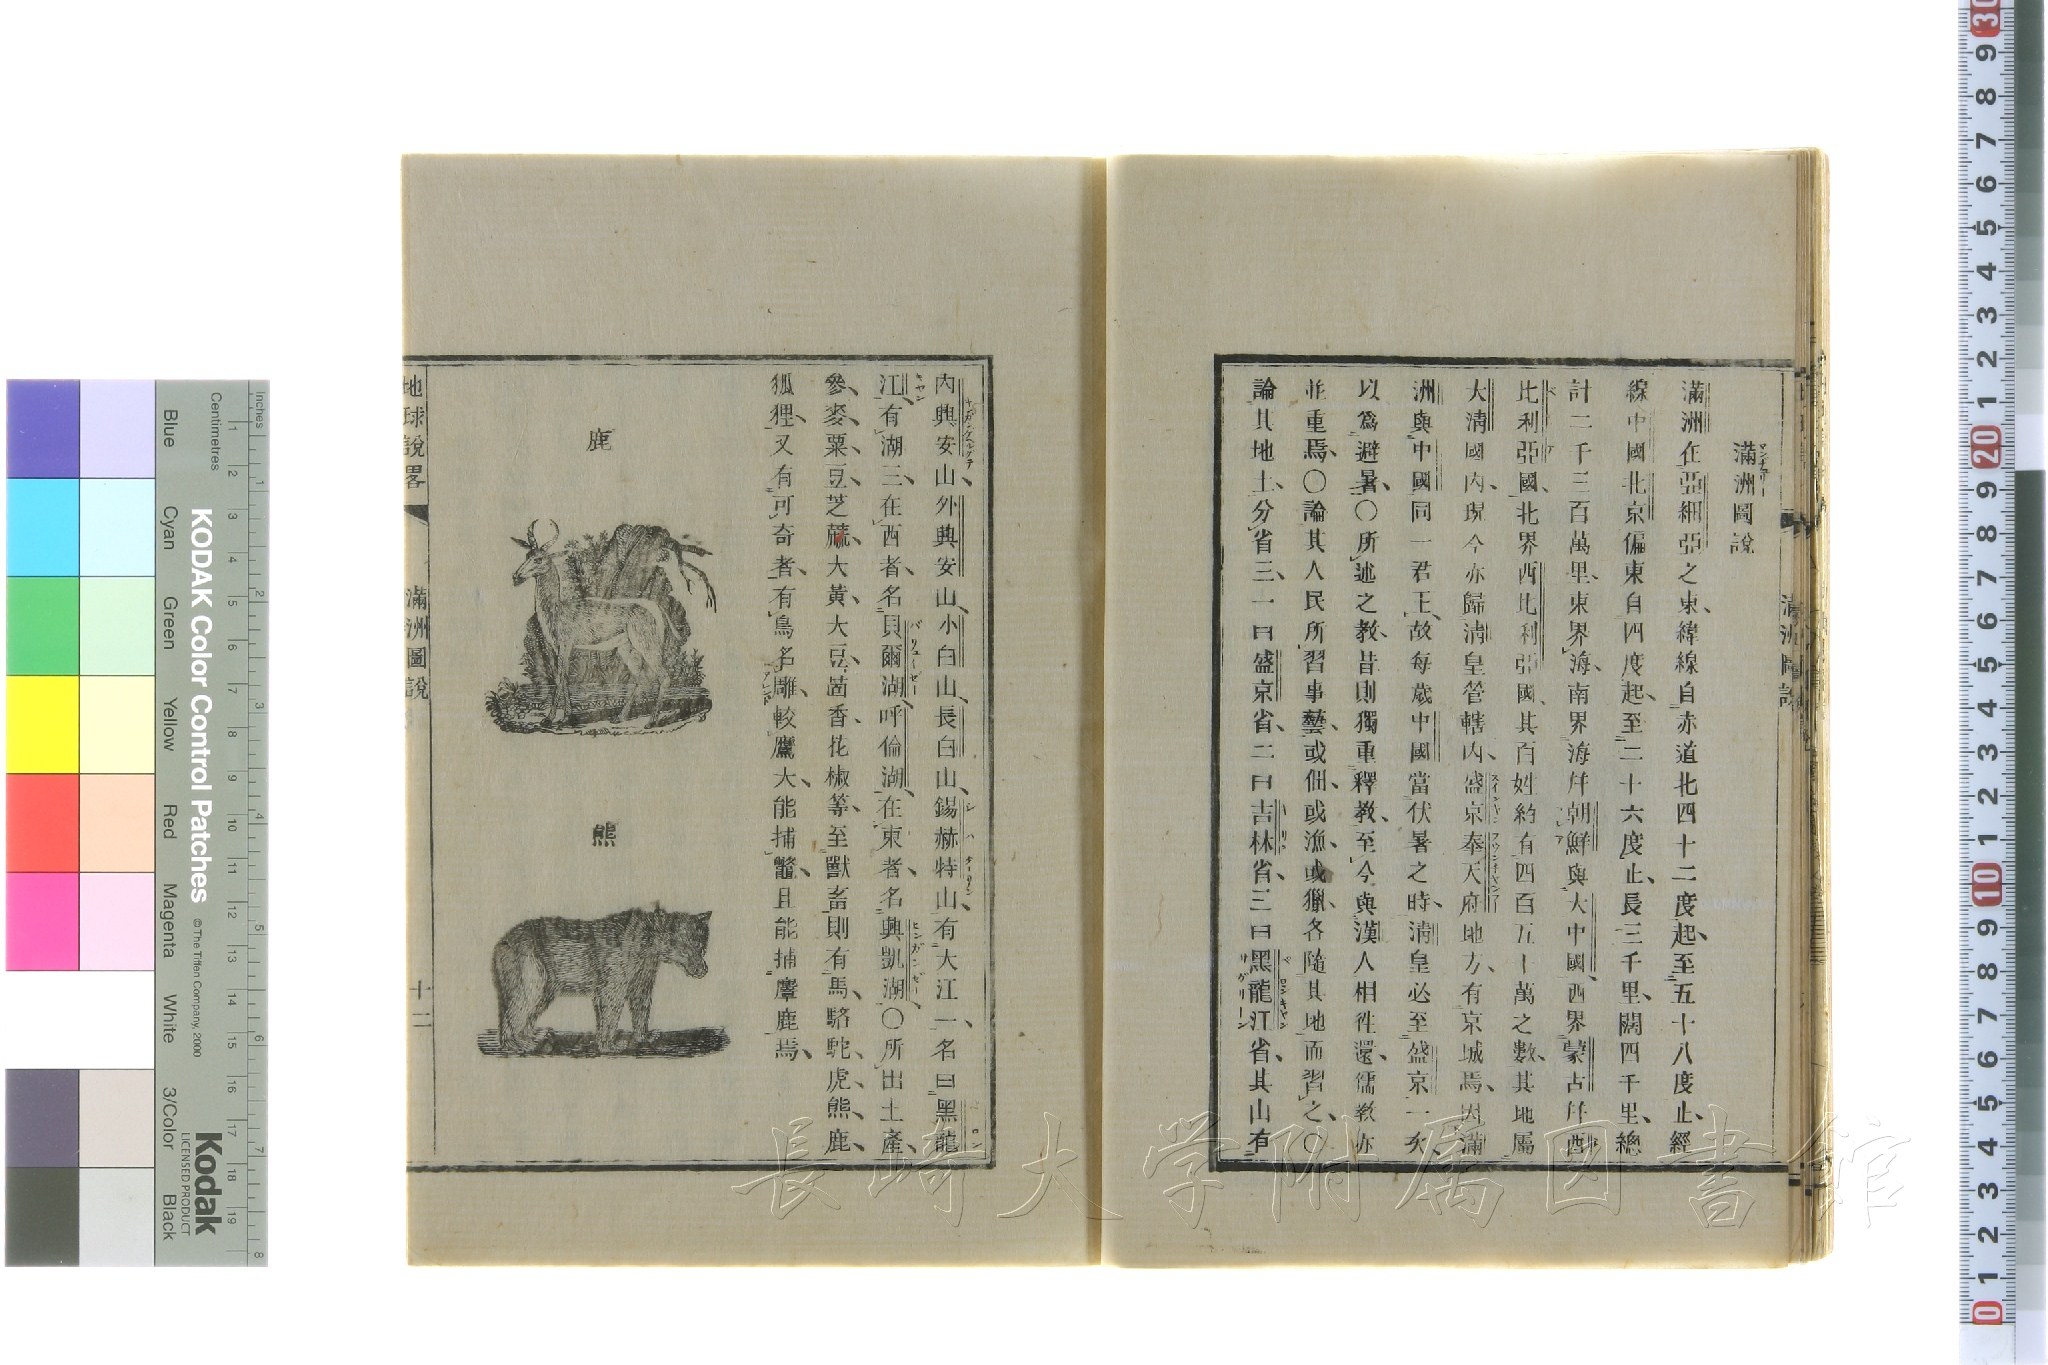 滿洲圖說
滿洲在亞細亞之東、緯線自赤道北四十二度起、至五十八度止、經
線中國北京偏東自四度起、至二十六度止、長三千里、闊四千里、總
計二千三百萬里、東界海、南界海幷朝鮮與大中國、西界蒙古幷西
比利亞國、北界西比利亞國、其百姓約有四百五十萬之數、其地屬
大淸國內、現今亦歸淸皇管轄內、盛京奉天府地方、有京城焉、因滿
洲與中國同一君王、故每歲中國當伏暑之時、淸皇必至盛京一次、
以爲避暑、〇所述之教、昔則獨重釋教、至今與漢人相徃還、儒教亦
並重焉、〇論其人民所習事藝、或佃、或漁、或獵、各隨其地而習之、〇
論其地土、分省三、一曰盛京省、二曰吉林省、三曰黑龍江省、其山有
內興安山、外興安山、小白山、長白山、錫赫特山、有大江一、名曰黑龍
江、有湖三、在西者、名貝爾湖、呼倫湖、在東者、名興凱湖、〇所出土產、
參、麥、粟、豆、芝蔴、大黃、大豆、茴香、花椒等、至獸畜則有馬、駱駝、虎、熊、鹿、
狐狸、又有可奇者、有鳥名雕、較鷹大、能捕鼈、且能捕麞鹿焉、
鹿
熊
地球說畧
滿洲圖說
十二
KODAK Color Control Patches
© The Tiffen Company, 2000
Kodak
LICENSED PRODUCT
Inches
Centimetres
Blue
Cyan
Green
Yellow
Red
Magenta
White
3/Color
Black
長崎大学附属図書館